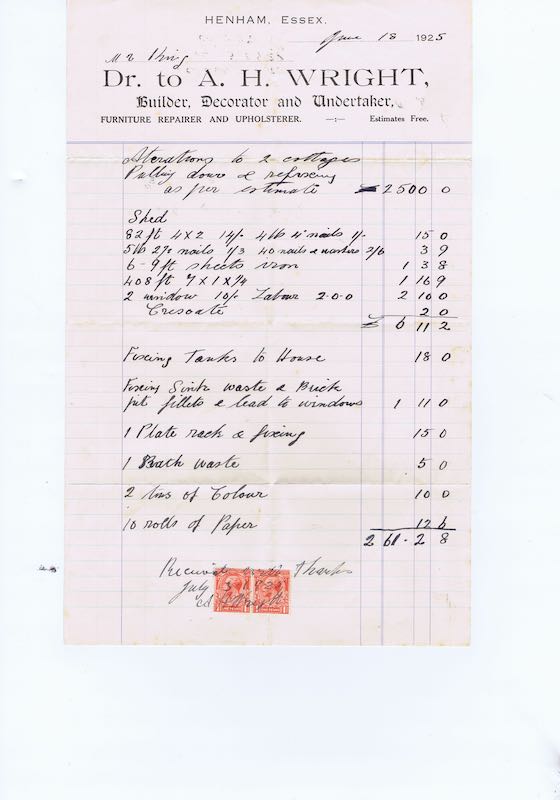 HENHAM, ESSEX.
June 18 1925
Mr King
DR. TO A. H. WRIGHT,
Builder, Decorator and Undertaker,
FURNITURE REPAIRER AND UPHOLSTERER. —:— Estimates Free.
Alterations to 2 cottages
Pulling down & refixing
as per estimate £ 250 0 0
Shed
82 ft 4x2 14/- 4lb 4" nails 1/- 15 0
5lb 2½ nails 1/3 40 nails & washers 2/6 3 9
6 - 9 ft sheets iron 1 3 8
408 ft 7 x 1 x ¾ 1 16 9
2 window 10/- Labour 2.0.0 2 10 0
Cresoate 2 0
£ 6 11 2
Fixing Tanks to House 18 0
Fixing Sink waste & Brick
put fillets & lead to windows 1 11 0
1 Plate rack & fixing 15 0
1 Bath waste 5 0
2 tns of Colour 10 0
10 rolls of Paper 12 6
261 - 2 8
Received with thanks
July 3
Wright